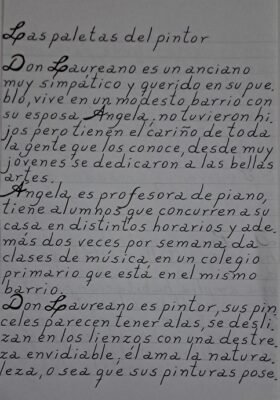 Las paletas del pintor
Don Laureano es un anciano
muy simpático y querido en su pue.
blo, vive en un modesto barrio con
su esposa Angela, no tuvieron hi.
jos pero tienen el cariño, de toda
la gente que los conoce, desde muy
jóvenes se dedicaron a las bellas
artes.
Angela, es profesora de piano,
tiene alumnos que concurren a su
casa en distintos horarios y ade.
más dos veces por semana, da
clases de música, en un colegio
primario que está en el mismo
barrio.
Don Laureano es pintor, sus pin
celes parecen tener alas, se desli.
zan en los lienzos con una destre.
za envidiable, él ama la natura.
leza, o sea que sus pinturas pose.